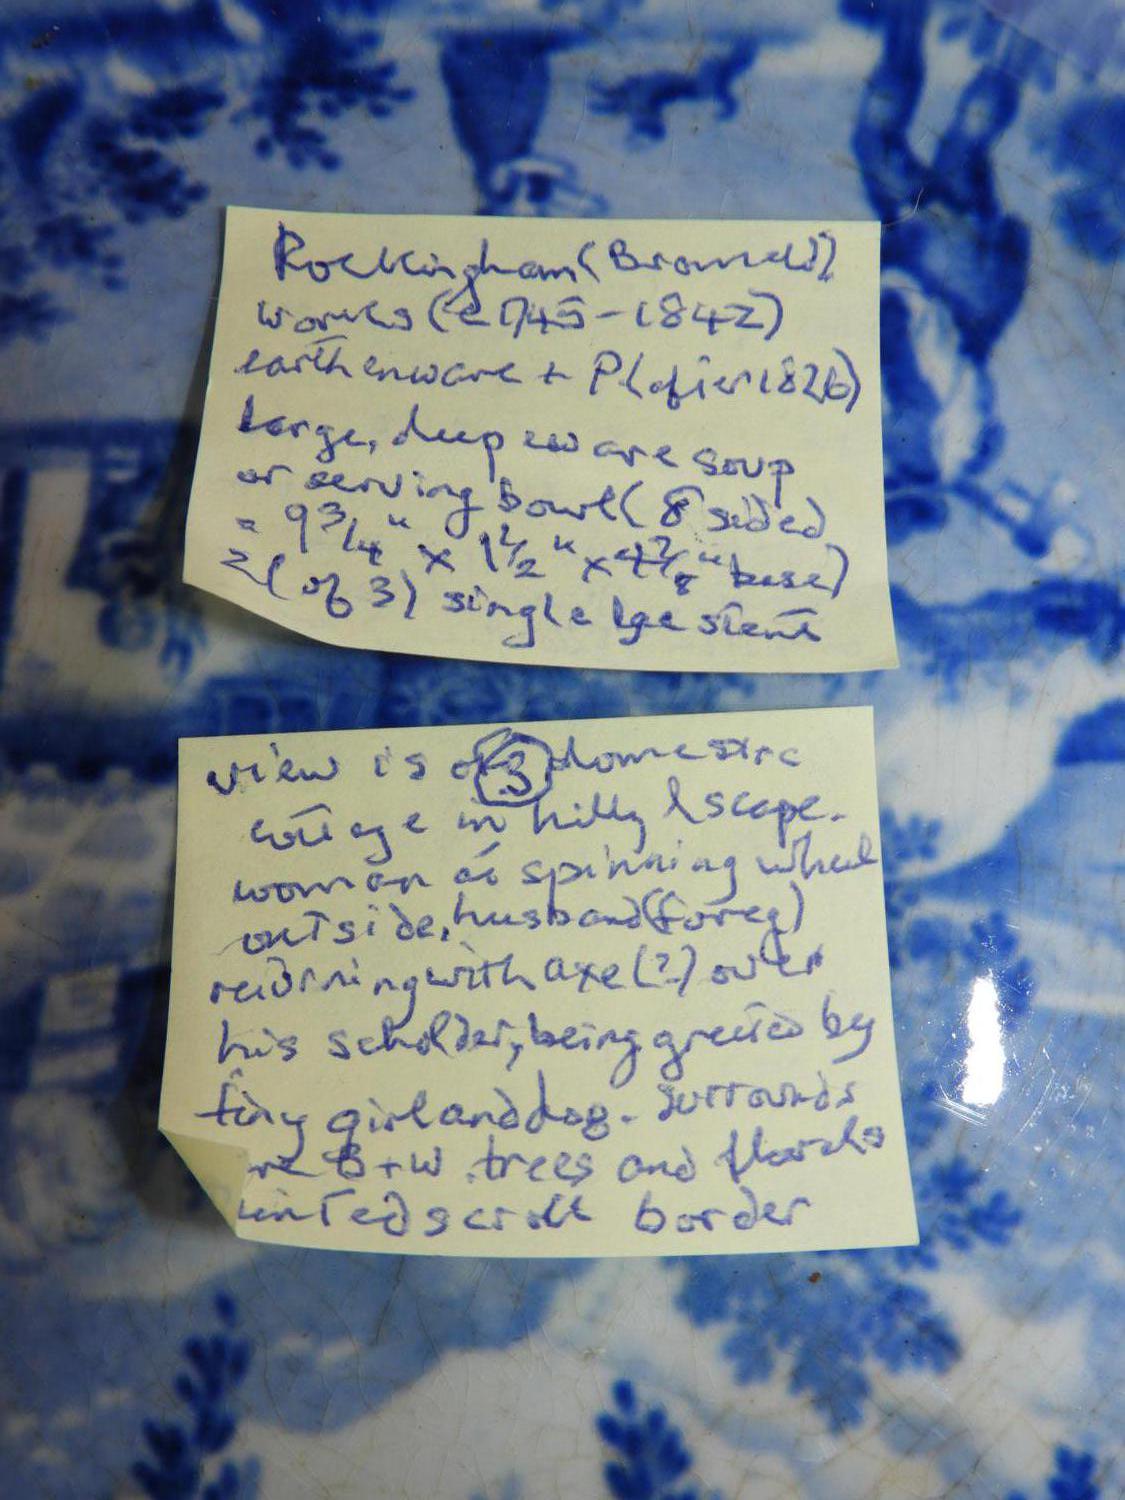 Rockingham (Brameld)
works (c1745-1842)
earthenware + P (after 1826)
Large, deep eware soup
or serving bowl (8 sided
= 9 3/4" x 1 1/2" x 4 7/8" base)
(of 3) single lge stent
view is of (3) domestic
cottage in hilly Lscape.
woman at spinning wheel
outside, husband (foreg)
returning with axe (?) over
his scholder, being greeted by
tiny girl and dog. Surrounds
B + W trees and florals
scroll border